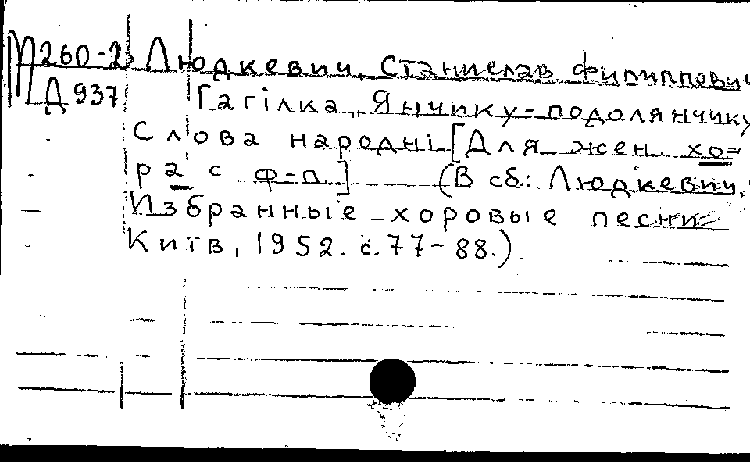 М260-2 Людкевич, Станислав Филиппович
Д937 Гагілка, Янчику-подолянчику
Слова народні [Для жен. хо=
ра с ф-п.] (В сб.: Людкевич.
Избранные хоровые песни
Київ, 1952. с.77-88.)